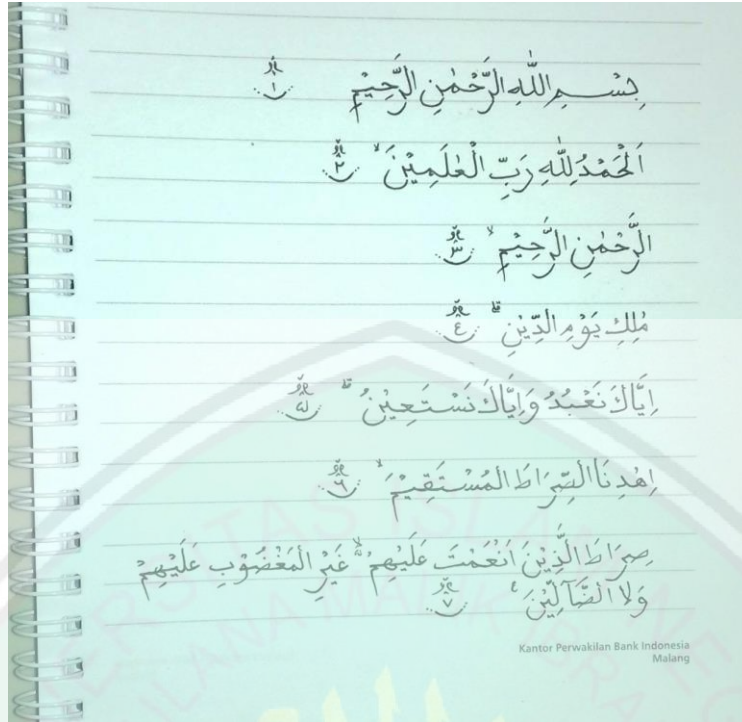 بِسْــمِ اللّٰهِ الرَّحْمٰنِ الرَّحِيْمِ ۝١
اَلْحَمْدُ لِلّٰهِ رَبِّ الْعٰلَمِيْنَ ۙ ۝٢
الرَّحْمٰنِ الرَّحِيْمِ ۙ ۝٣
مٰلِكِ يَوْمِ الدِّيْنِ ۗ ۝٤
اِيَّاكَ نَعْبُدُ وَاِيَّاكَ نَسْتَعِيْنُ ۗ ۝٥
اِهْدِنَا الصِّرَاطَ الْمُسْتَقِيْمَ ۙ ۝٦
صِرَاطَ الَّذِيْنَ اَنْعَمْتَ عَلَيْهِمْ ۙ۬ غَيْرِ الْمَغْضُوْبِ عَلَيْهِمْ
وَلَا الضَّاۤلِّيْنَ ۝٧
Kantor Perwakilan Bank Indonesia
Malang